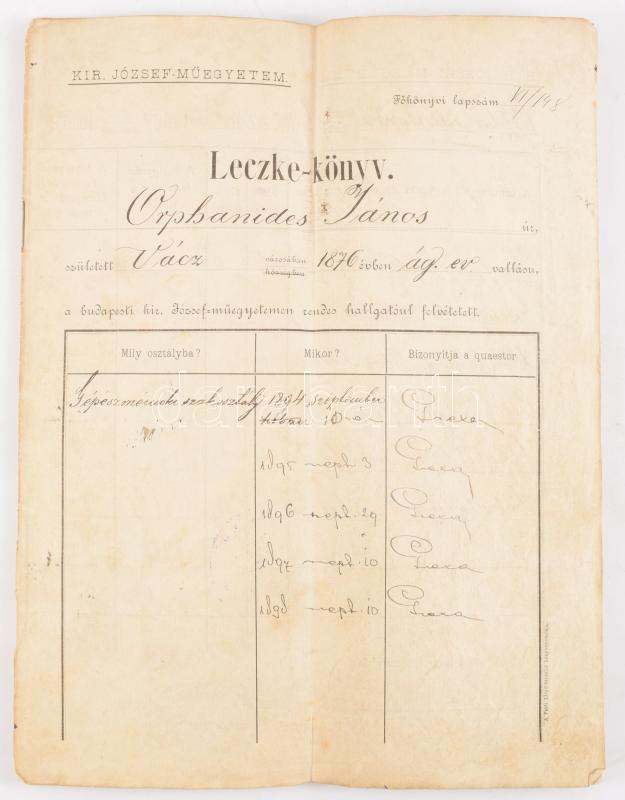 KIR. JÓZSEF-MŰEGYETEM.
Főkönyvi lapszám VI/198
Leczke-könyv.
Orphanides János úr,
született Vácz városában községben 1876 évben ág. ev. vallású,
a budapesti kir. József-műegyetemen rendes hallgatóul felvétetett.
Mily osztályba? Mikor? Bizonyítja a quaestor
Gépészmérnöki szakosztály 1894 szeptember
10 én
1895 sept. 3
1896 sept. 29
1897 sept. 10
1898 sept. 10
darabanth